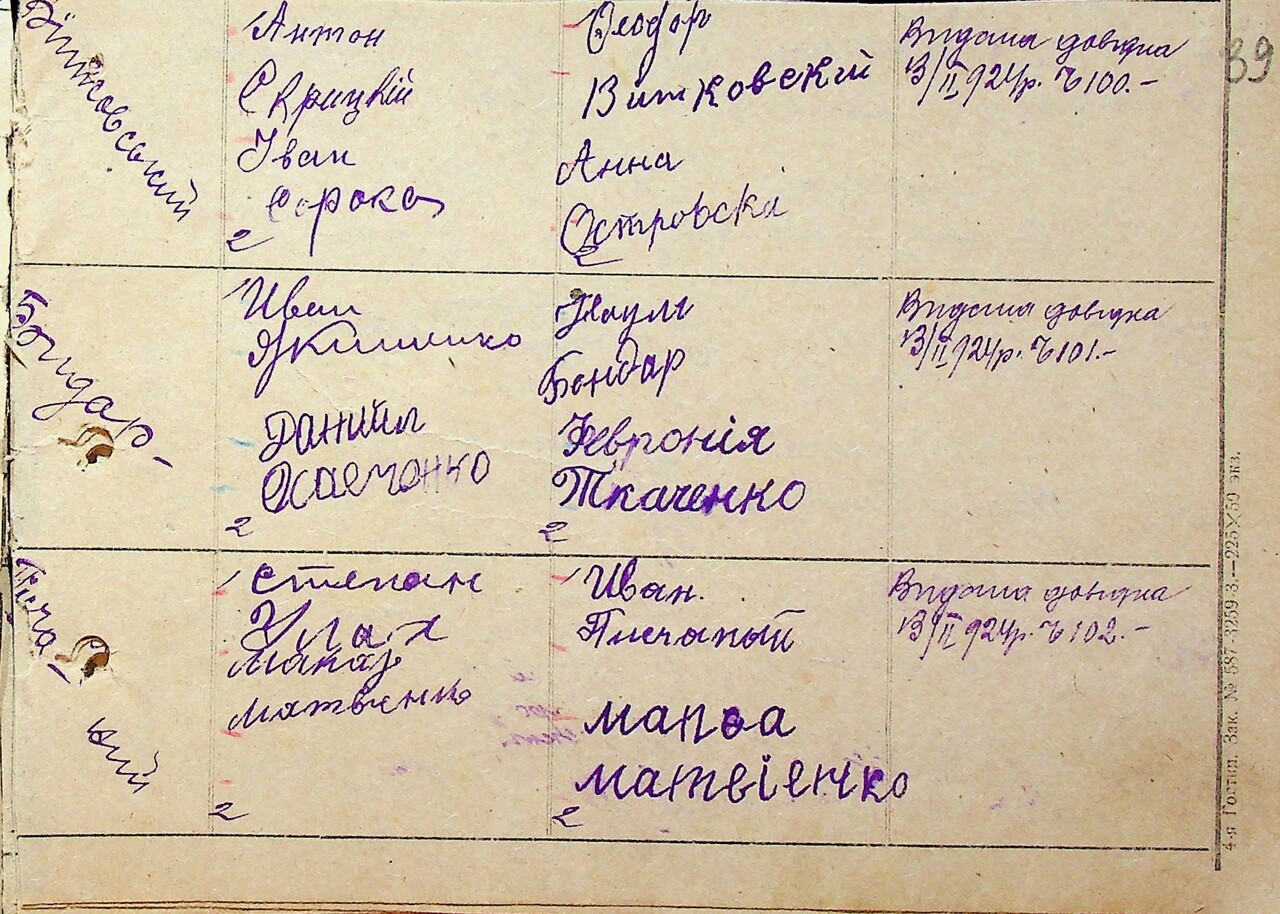 Вітковський
Антон
Скрицкій
Іван
Сорока
2
Ѳеодор
Витковскій
Анна
Островскі
2
Видана довідка
13/II 924р. № 100.-
39
Бондар-
Иван
Якименко
Даниил
Ткаченко
2
Наум
Бондар
Февронія
Ткаченко
2
Видана довідка
13/II 924р. № 101.-
Писа-
ний
Степан
Улах
Макар
Матвіенко
2
Иван.
Писаный
Марѳа
Матвіенко
2
Видана довідка
13/II 924р. № 102.-
4-я Гостип. Зак. № 587-3259-3.—225×50 экз.